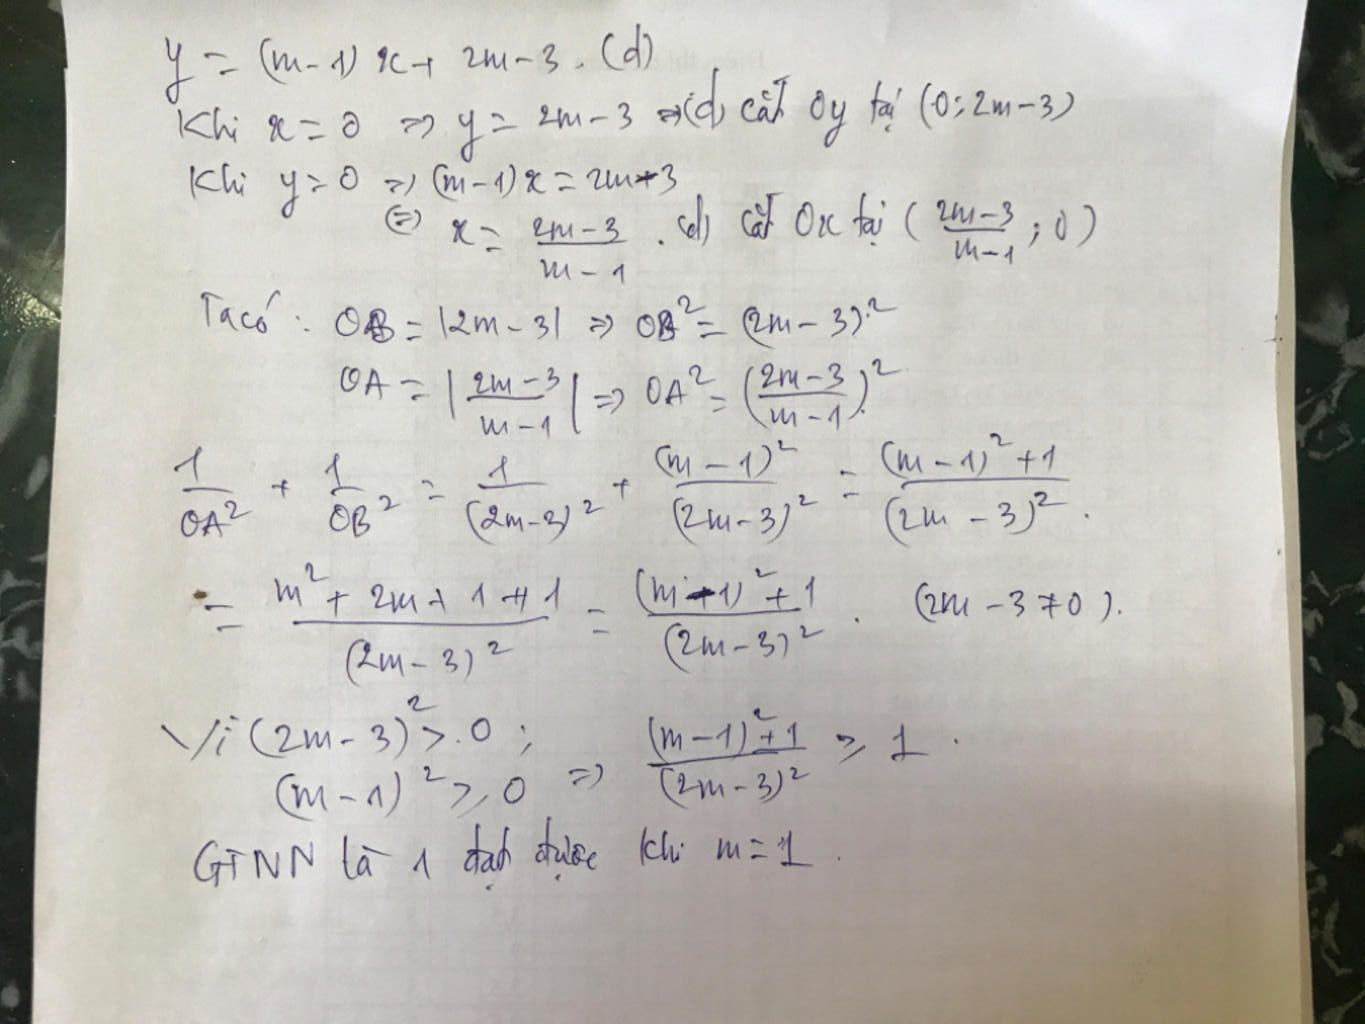 y = (m-1)x + 2m-3. (d)
Khi x = 0 => y = 2m-3 => (d) cắt Oy tại (0; 2m-3)
Khi y = 0 => (m-1)x = 2m+3
<=> x = (2m-3)/(m-1) . (d) cắt Ox tại ((2m-3)/(m-1) ; 0)
Ta có : OB = |2m-3| => OB² = (2m-3)²
OA = |(2m-3)/(m-1)| => OA² = ((2m-3)/(m-1))²
1/OA² + 1/OB² = 1/(2m-3)² + (m-1)²/(2m-3)² = ((m-1)²+1)/(2m-3)² .
= (m² + 2m + 1 + 1)/(2m-3)² = ((m+1)² + 1)/(2m-3)² . (2m-3≠0).
Vì (2m-3)² > 0 ; ((m-1)²+1)/(2m-3)² ≥ 1 .
(m-1)² ≥ 0 =>
GTNN là 1 đạt được khi m = 1 .